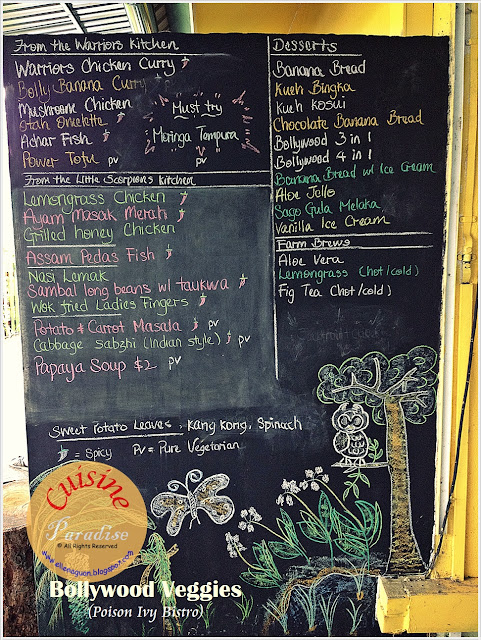 From the Warriors Kitchen
Warriors Chicken Curry
Bolly Banana Curry
Mushroom Chicken
Otah Omelette
Achar Fish
Power Tofu PV
Must try
Moringa Tempura
PV
From the Little Scorpions Kitchen
Lemongrass Chicken
Ayam Masak Merah
Grilled honey Chicken
Assam Pedas Fish
Nasi Lemak
Sambal long beans w/ taukwa
Wok fried Ladies Fingers
Potato & Carrot Masala PV
Cabbage sabzhi (Indian style) PV
Papaya Soup $2 PV
Desserts
Banana Bread
Kueh Bingka
Kueh Kosui
Chocolate Banana Bread
Bollywood 3 in 1
Bollywood 4 in 1
Banana Bread w/ Ice Cream
Aloe Jello
Sago Gula Melaka
Vanilla Ice Cream
Farm Brews
Aloe Vera
Lemongrass (hot/cold)
Fig Tea (hot/cold)
Sweet Potato Leaves, Kang Kong, Spinach
= Spicy PV = Pure Vegetarian
Cuisine
Paradise
© All Rights Reserved
www.ellenaguan.blogspot.com
Bollywood Veggies
(Poison Ivy Bistro)